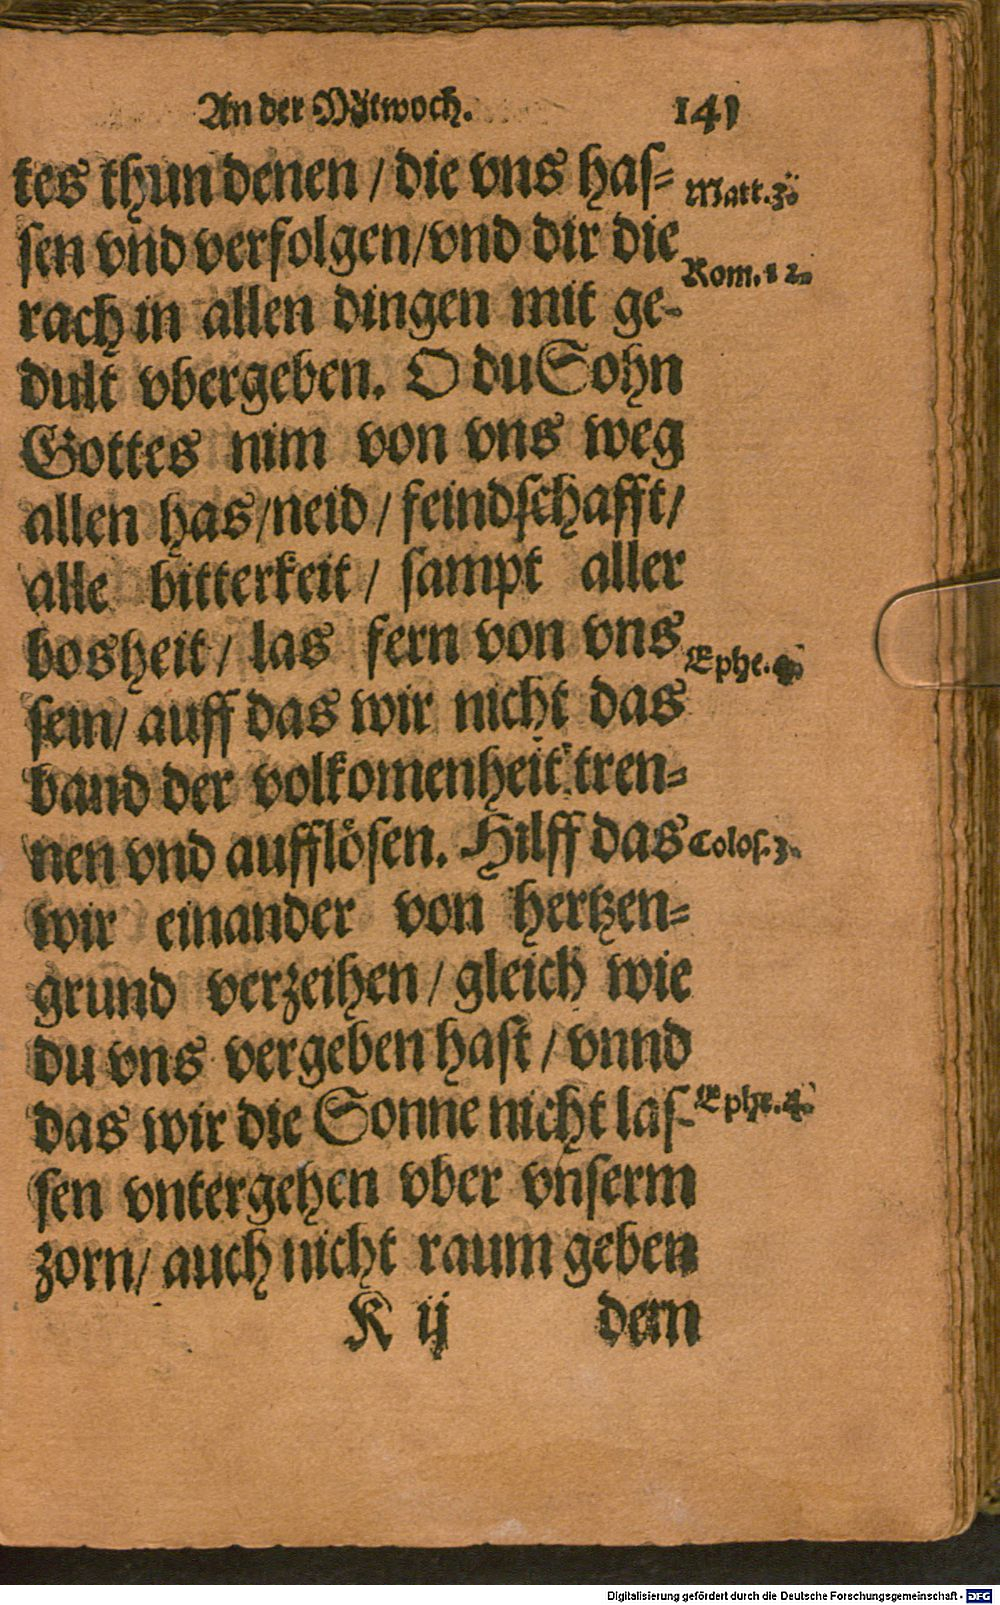 An der Mitwoch. 141
tes thun denen / die vns has-
sen vnd verfolgen/vnd dir die
rach in allen dingen mit ge-
dult vbergeben. O du Sohn
Gottes nim von vns weg
allen has/neid / feindschafft/
alle bitterkeit / sampt aller
bosheit / las fern von vns
sein/ auff das wir nicht das
band der volkomenheit tren-
nen vnd aufflösen. Hilff das
wir einander von hertzen-
grund verzeihen / gleich wie
du vns vergeben hast / vnnd
das wir die Sonne nicht las-
sen vntergehen vber vnserm
zorn/ auch nicht raum geben
K ij dern
Matt.
Rom.12.
Ephe.4.
Colos.3.
Ephe.4.
Digitalisierung gefördert durch die Deutsche Forschungsgemeinschaft - DFG